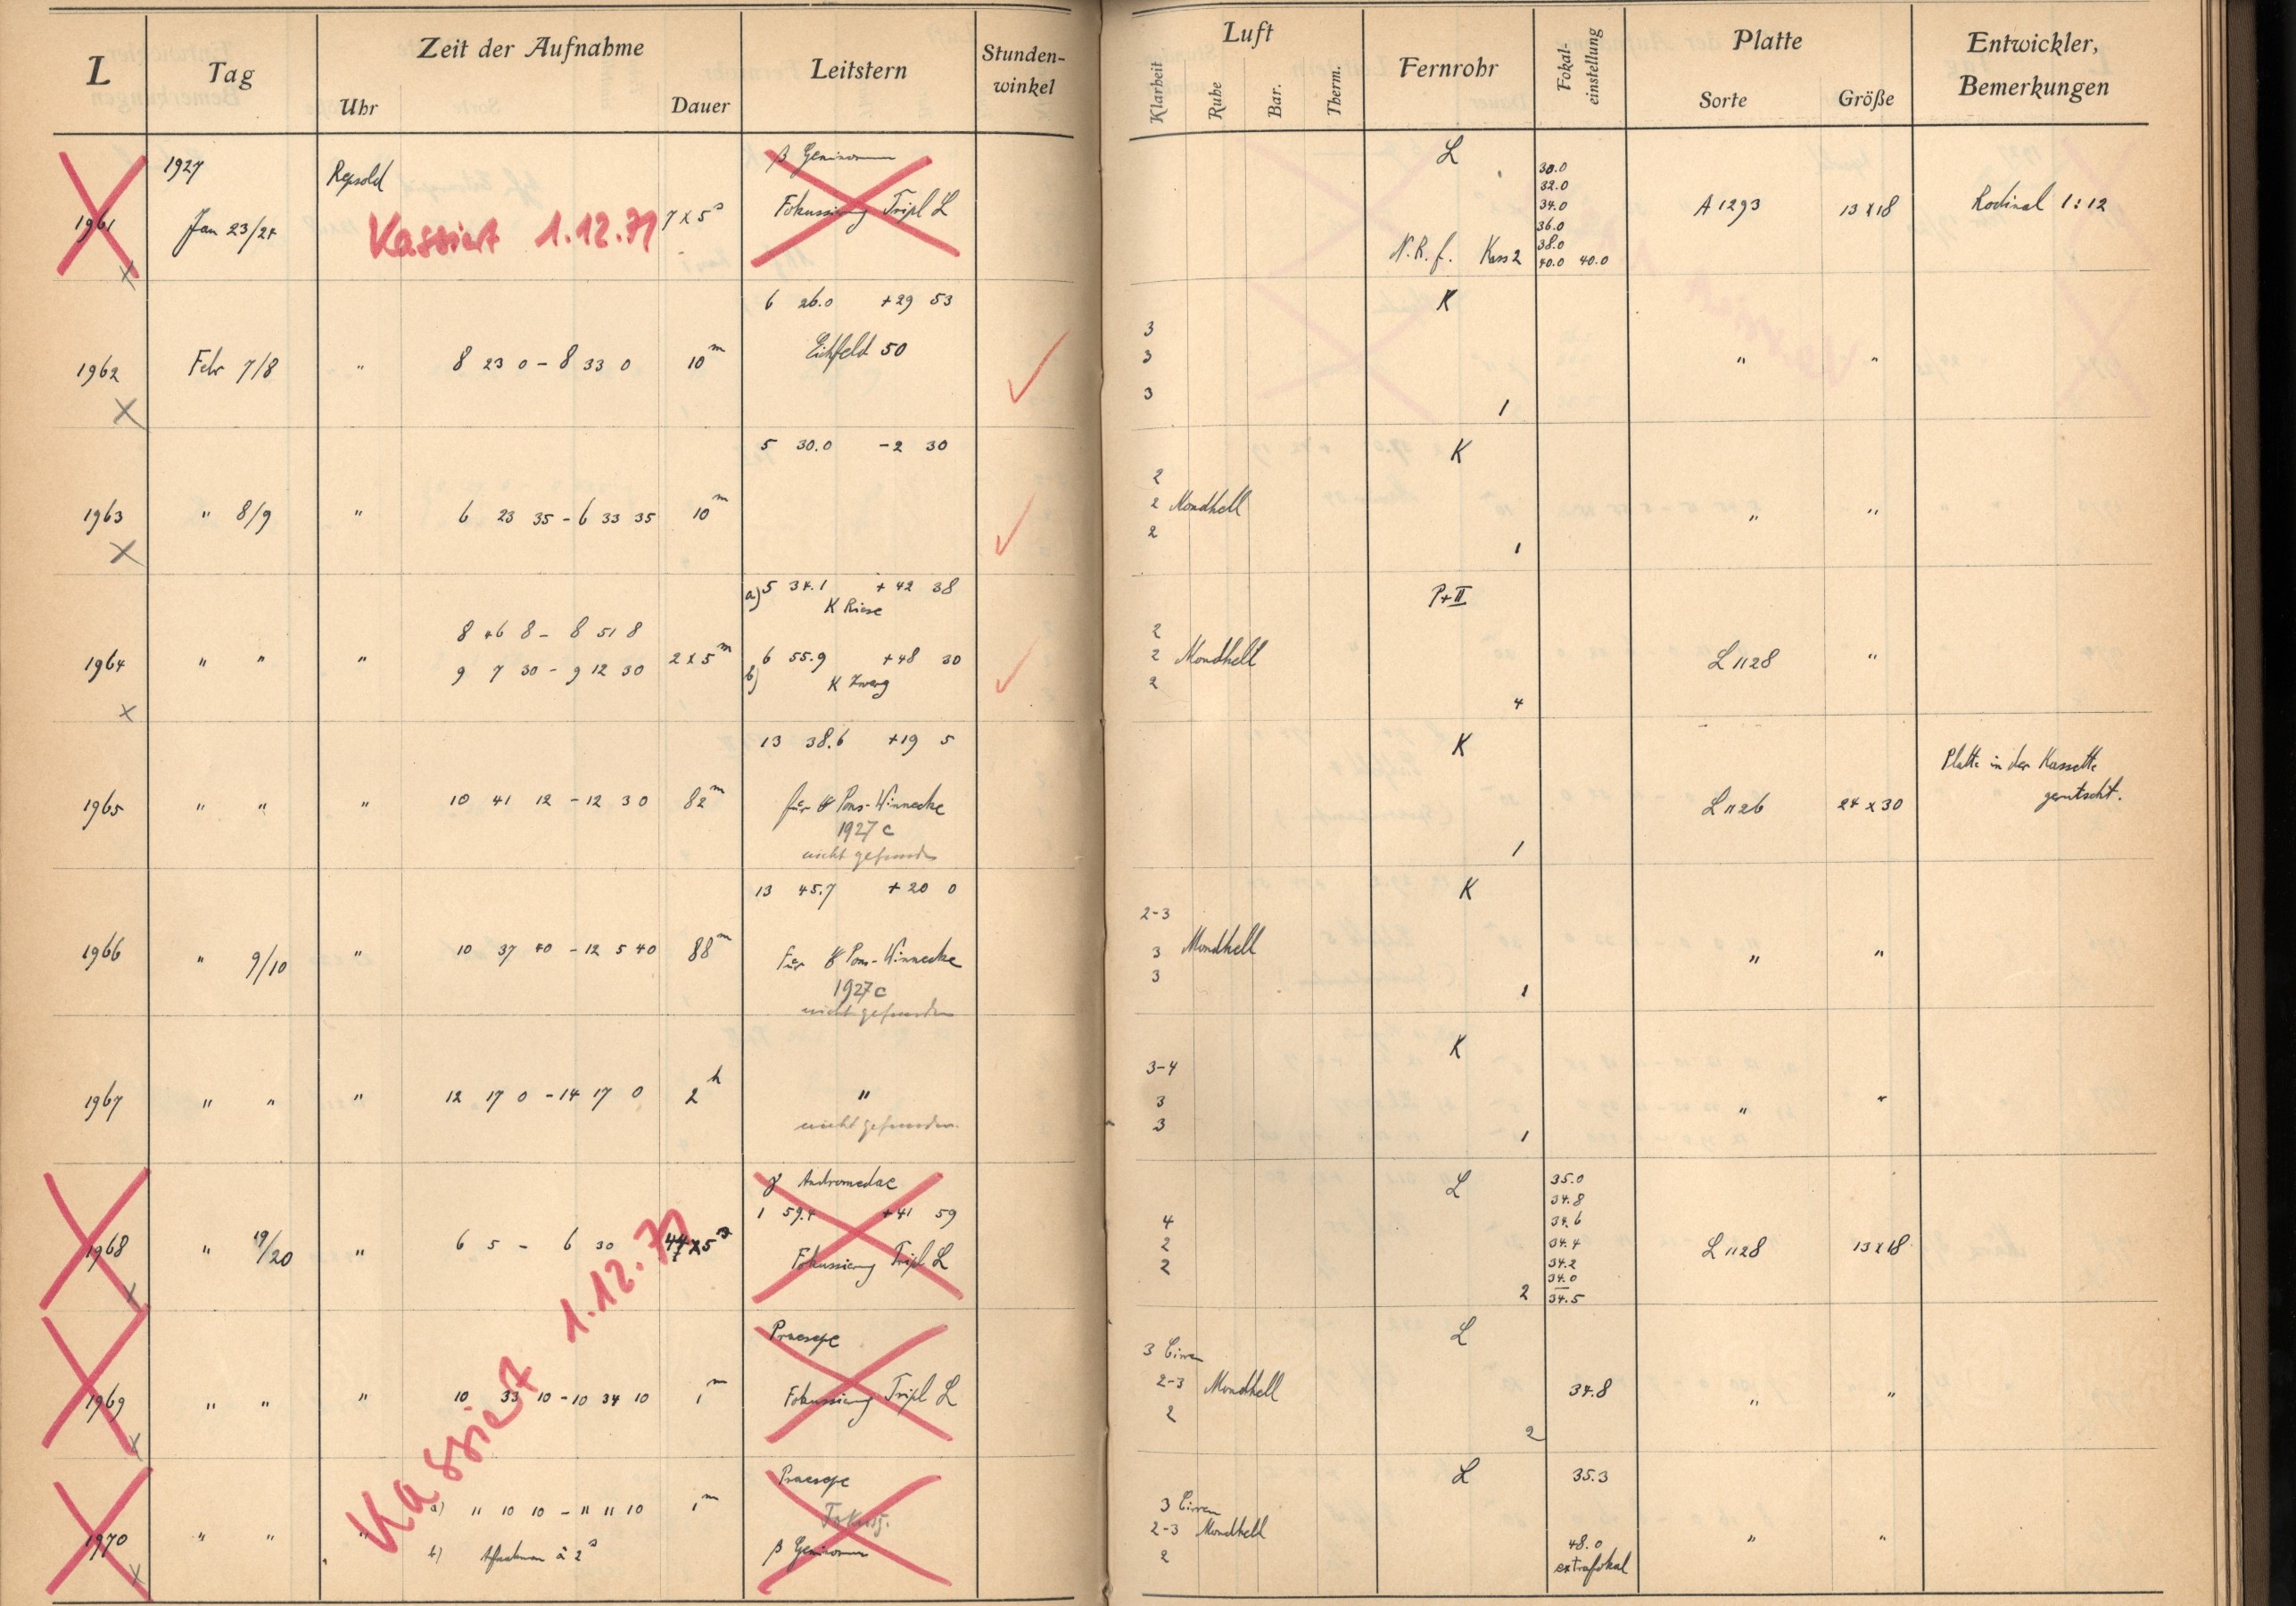 L Tag Zeit der Aufnahme Leitstern Stunden-winkel Luft Fernrohr Fokal-einstellung Platte Entwickler, Bemerkungen
Uhr Dauer Klarheit Ruhe Bar. Therm. Sorte Größe
1927 Repsold β Geminorum L 30.0
32.0
1961 Jan 23/24 7 x 5s Fokussierung Tripl L 34.0 A 1293 13 x 18 Rodinal 1:12
Kassiert 1.12.71
36.0
38.0
N.R.f. Kass 2 40.0 40.0
x
6 26.0 +29 53 K
3
1962 Febr 7/8 " 8 23 0 - 8 33 0 10m Eichfeld 50 ✓ 3 " "
3
x 1
5 30.0 -2 30 K
2
1963 " 8/9 " 6 23 35 - 6 33 35 10m ✓ 2 Mondhell " "
2
x 1
a) 5 34.1 +42 38 P+II
K Riese
8 46 8 - 8 51 8 2
1964 " " " 9 7 30 - 9 12 30 2 x 5m b) 6 55.9 +48 30 ✓ 2 Mondhell L 1128 "
K Zwerg 2
x 4
13 38.6 +19 5 K Platte in der Kassette
1965 " " " 10 41 12 - 12 3 0 82m für Pons-Winnecke L 1126 24 x 30 gerutscht.
1927 c
nicht gefunden 1
13 45.7 +20 0 K
2-3
1966 " 9/10 " 10 37 40 - 12 5 40 88m Für Pons-Winnecke 3 Mondhell " "
1927 c 3
nicht gefunden 1
K
3-4
1967 " " " 12 17 0 - 14 17 0 2h " 3 " "
nicht gefunden. 3
1
γ Andromedae L 35.0
34.8
1 59.4 +41 59 4 34.6
1968 " 19/20 " 6 5 - 6 30 x 5s Fokussierung Tripl L 2 34.4 L 1128 13 x 18
2 34.2
34.0
x 2 34.5
Kassiert 1.12.71
Praesepe L
3 Cirren
1969 " " " 10 33 10 - 10 34 10 1m Fokussierung Tripl L 2-3 Mondhell 34.8 " "
2
x 2
Praesepe L 35.3
a) 11 10 10 - 11 11 10 1m Fokuss. 3 Cirren
1970 " " " 2-3 Mondhell " "
b) Aufnahmen à 2s β Geminorum 2 48.0
x extrafokal